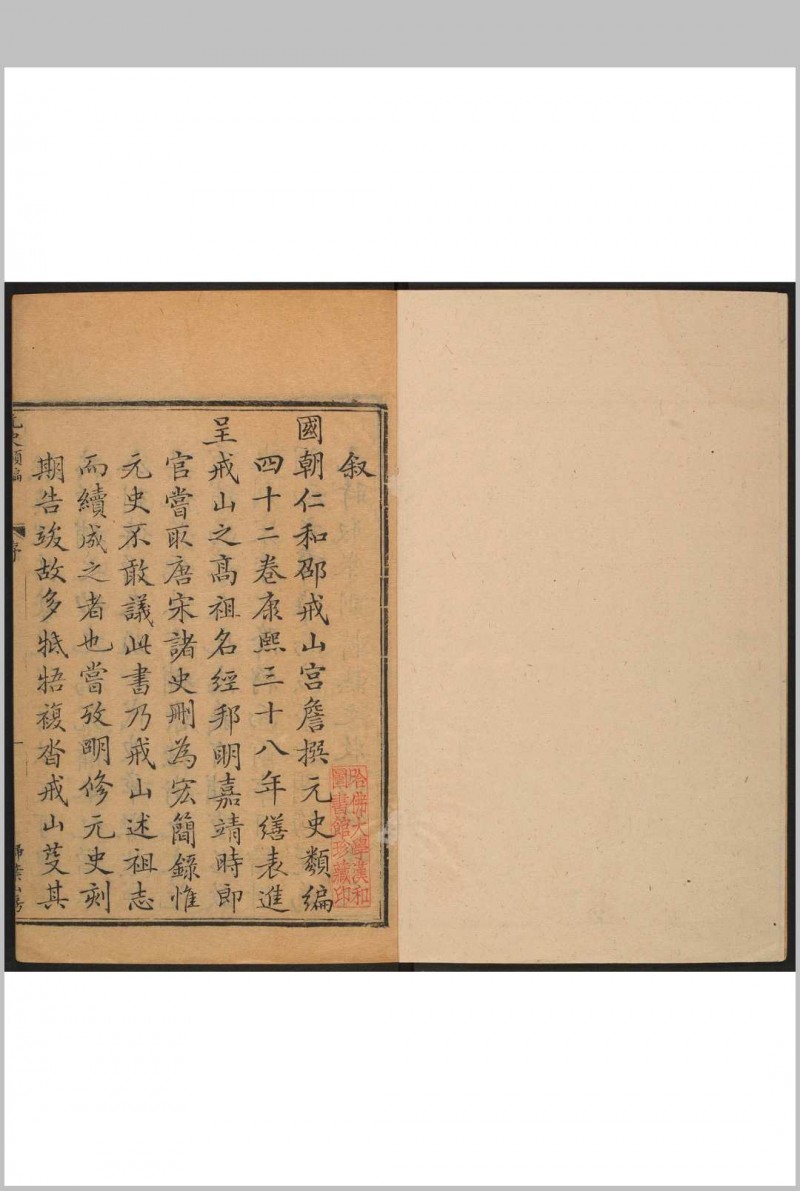 叙
國朝仁和邵戒山宫詹撰元史類編
四十二卷康熙三十八年繕表進
呈戒山之髙祖名經邦明嘉靖時即
官嘗取唐宋諸史刪為宏簡錄惟
元史不敢議此書乃戒山述祖志
而續成之者也嘗攷明修元史刻
期告竣故多牴牾複沓戒山芟其
元史類編
序
一
掃葉山房
哈佛大學漢和
圖書館珍藏印